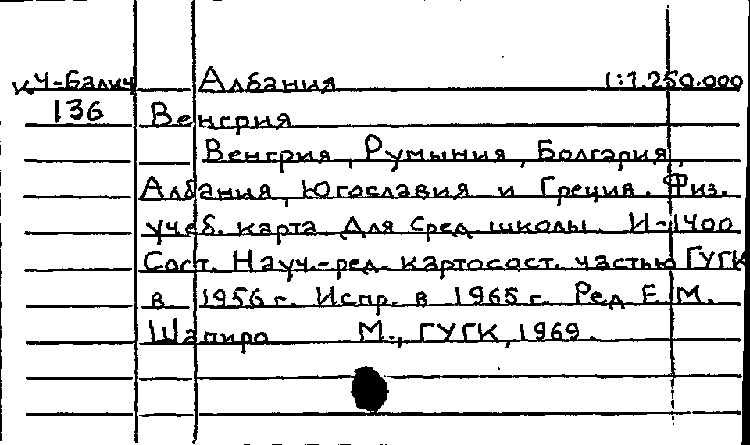 кЧ-Балич Албания 1:1.250.000
136 Венгрия
Венгрия, Румыния, Болгария,
Албания, Югославия и Греция. Физ.
учеб. карта для сред. школы. И-1400
Сост. Науч.-ред. картосост. частью ГУГК
в 1956 г. Испр. в 1965 г. Ред Е.М.
Шапиро М., ГУГК, 1969.